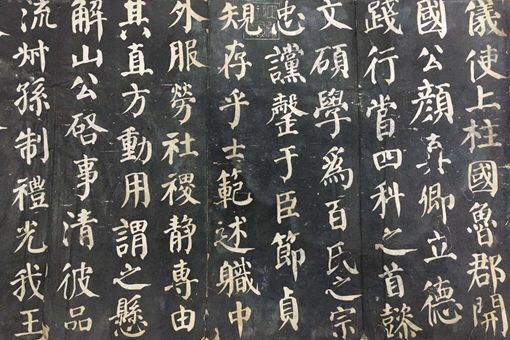 儀使上柱國魯郡開
國公顏真卿立德
踐行當四科之首懿
文碩學為百氏之宗
忠讜罄于臣節貞
規存乎士範述職中
外服勞社稷静專由
其直方動用謂之懸
解山公啓事清彼品
流叔孫制禮光我王